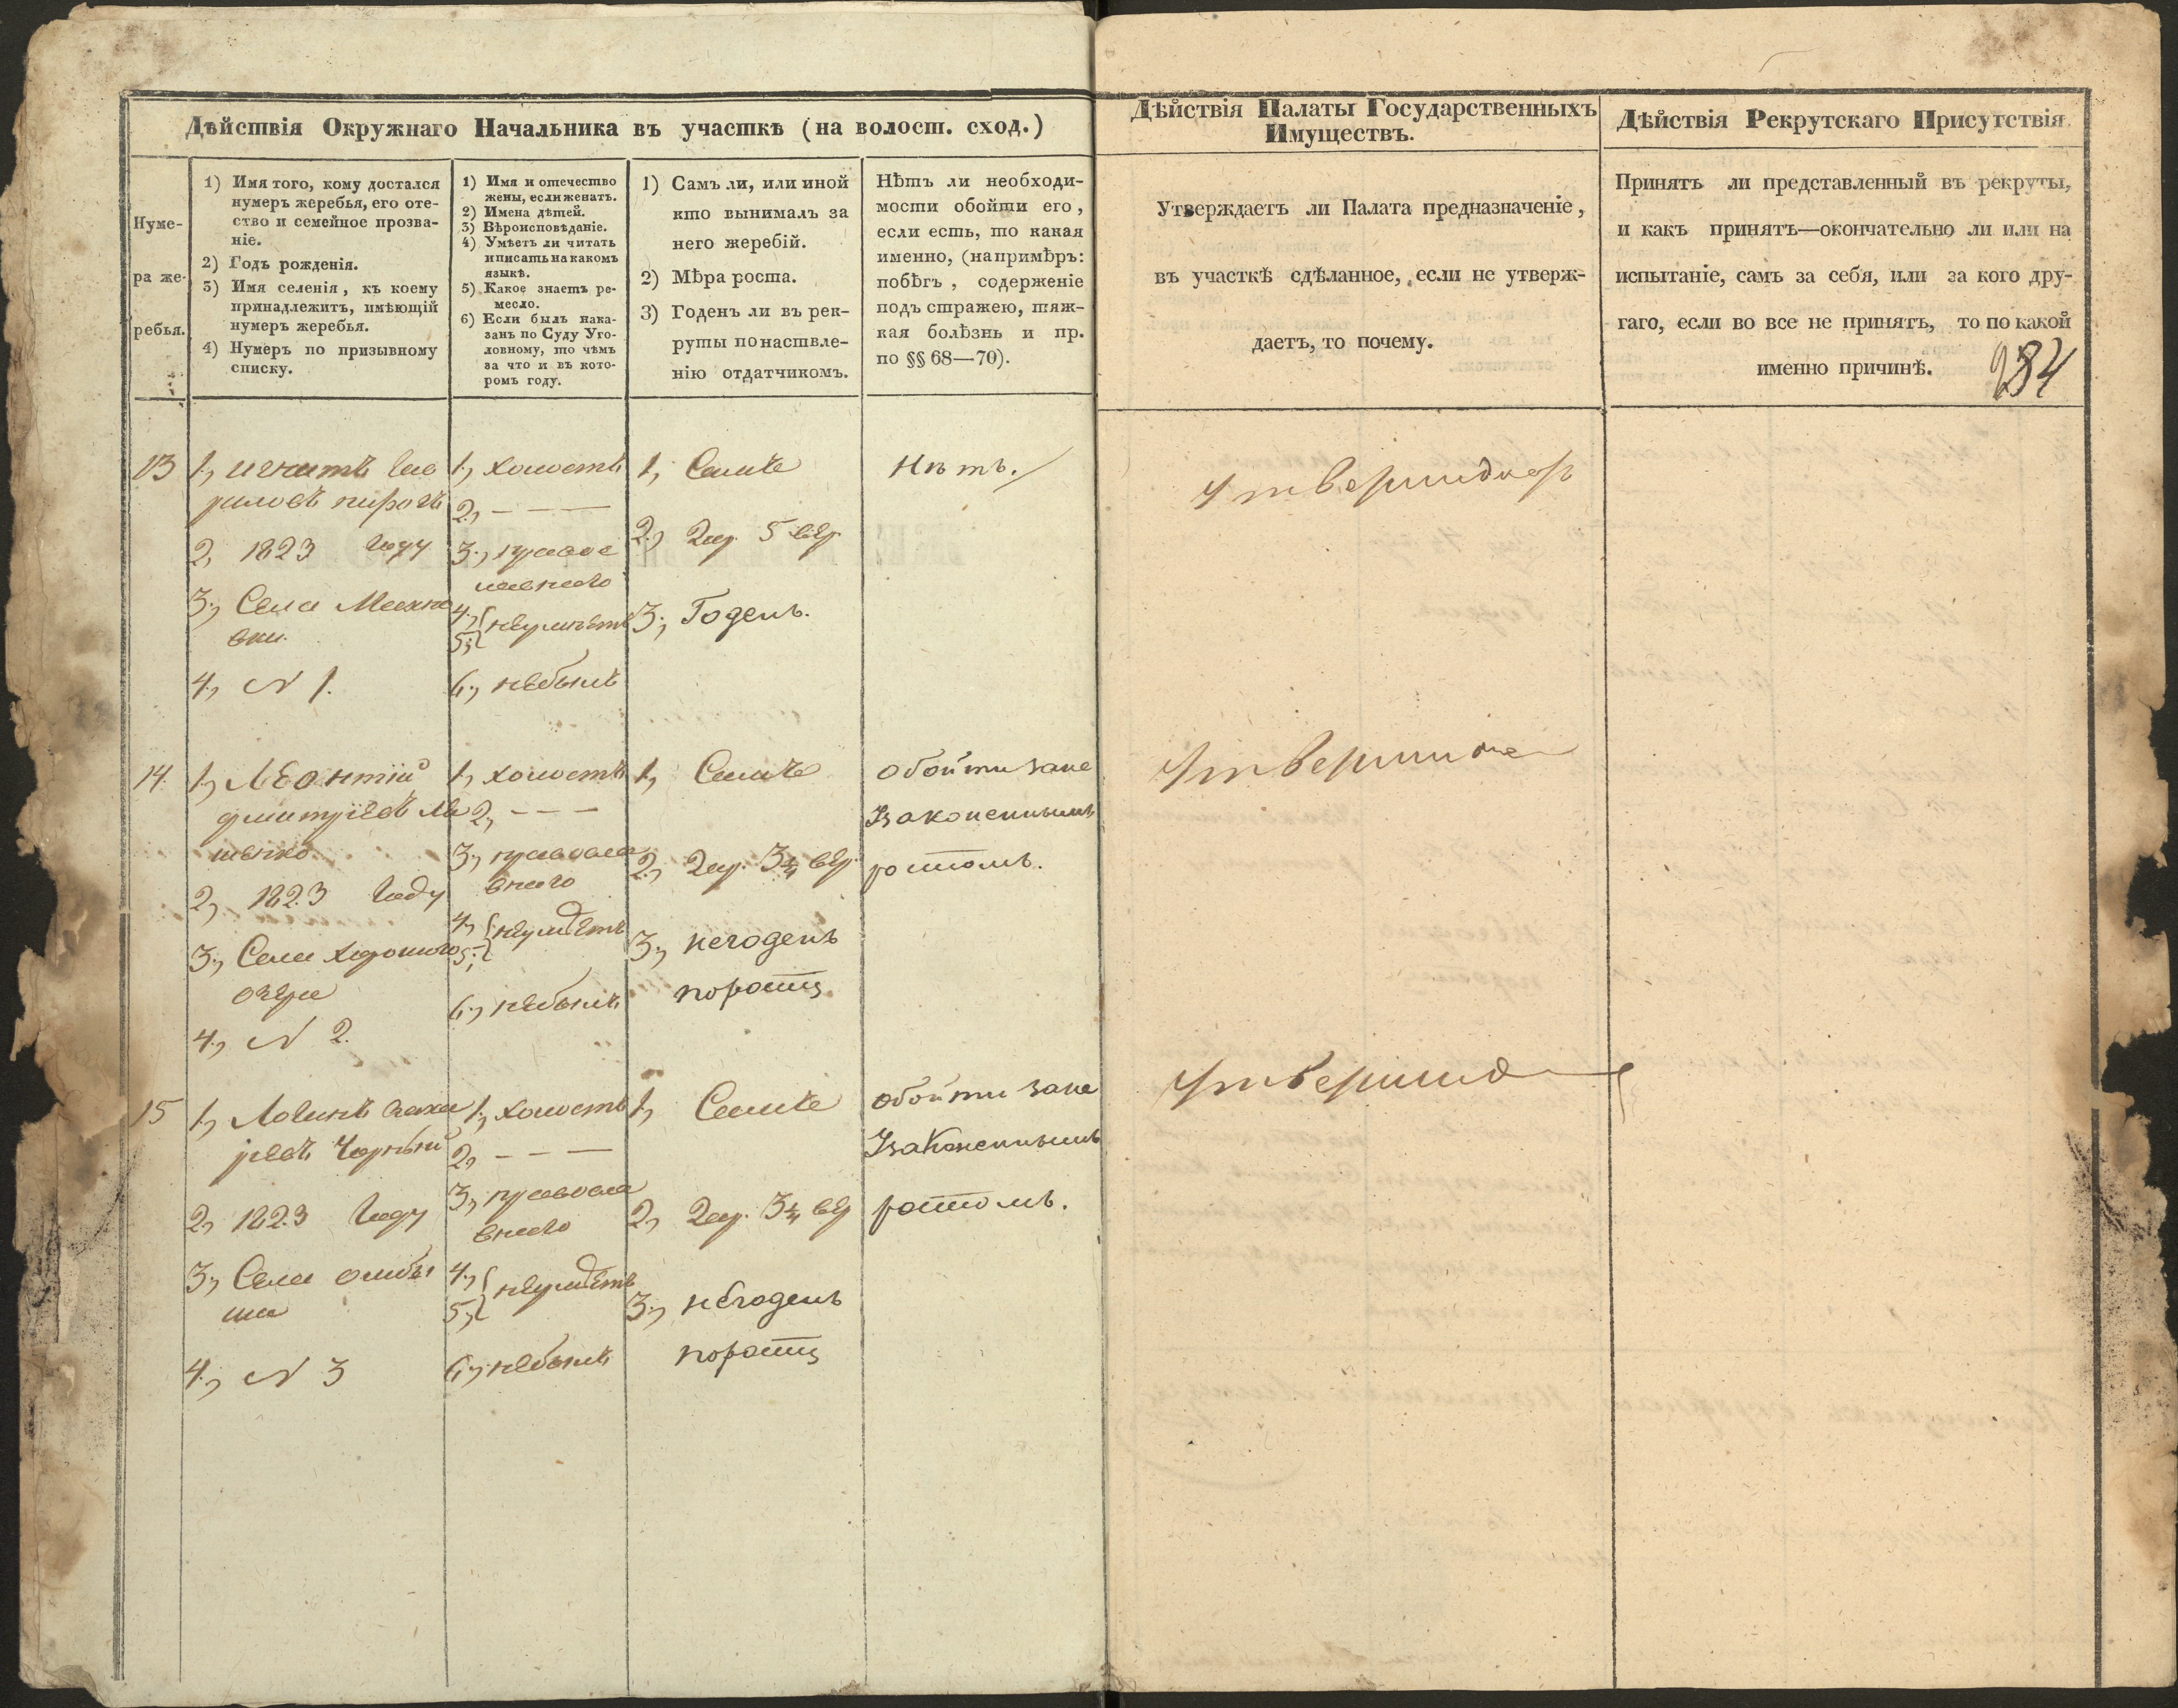 Дѣйствія Окружнаго Начальника въ участкѣ (на волост. сход.)
Дѣйствія Палаты Государственныхъ
Имуществъ.
Дѣйствія Рекрутскаго Присутствія
Нуме-
ра же-
ребья.
1) Имя того, кому достался
нумеръ жеребья, его оте-
ство и семейное прозва-
ніе.
2) Годъ рожденія.
3) Имя селенія, къ коему
принадлежитъ, имѣющій
нумеръ жеребья.
4) Нумеръ по призывному
списку.
1) Имя и отечество
жены, если женатъ.
2) Имена дѣтей.
3) Вѣроисповѣданіе.
4) Умѣетъ ли читать
и писать на какомъ
языкѣ.
5) Какое знаетъ ре-
месло.
6) Если былъ нака-
занъ по Суду Уго-
ловному, то чѣмъ
за что и въ кото-
ромъ году.
1) Самъ ли, или иной
кто вынималъ за
него жеребій.
2) Мѣра роста.
3) Годенъ ли въ рек-
руты по наствле-
нію отдатчикомъ.
Нѣтъ ли необходи-
мости обойти его,
если есть, то какая
именно, (напримѣръ:
побѣгъ, содержаніе
подъ стражею, тяж-
кая болѣзнь и пр.
по §§ 68—70).
Утверждаетъ ли Палата предназначеніе,
въ участкѣ сдѣланное, если не утверж-
даетъ, то почему.
Принятъ ли представленный въ рекруты,
и какъ принятъ—окончательно ли или на
испытаніе, самъ за себя, или за кого дру-
гаго, если во все не принятъ, то по какой
именно причинѣ.
284
13
1, Гав
риловъ
2, 1823 году
3, Села Махно
вки.
4, N 1.
1, холостъ
2, – – –
3, правос
лавнаго
4, неумѣетъ
5,
6, небылъ
1, Самъ
2, 2 ар. 5 вер
3, Годенъ.
Нѣтъ.
14.
1, Леонтій
Дмитріевъ
2, 1823 году
3, Села Хорошого
озера
4, N 2.
1, холостъ
2, – – –
3, правосла
внаго
4, неумѣетъ
5,
6, небылъ
1, Самъ
2, 2 ар. 3¾ вер.
3, негоденъ
поросту
обойти зане
Узаконеннымъ
ростомъ.
15
1, Логинъ Заха
ревъ Чорный
2, 1823 году
3, Села омбы
ша
4, N 3
1, холостъ
2, – – –
3, правосла
внаго
4, неумѣетъ
5,
6, небылъ
1, Самъ
2, 2 ар. 3¾ вер
3, негоденъ
поросту
обойти зане
Узаконеннымъ
ростомъ.